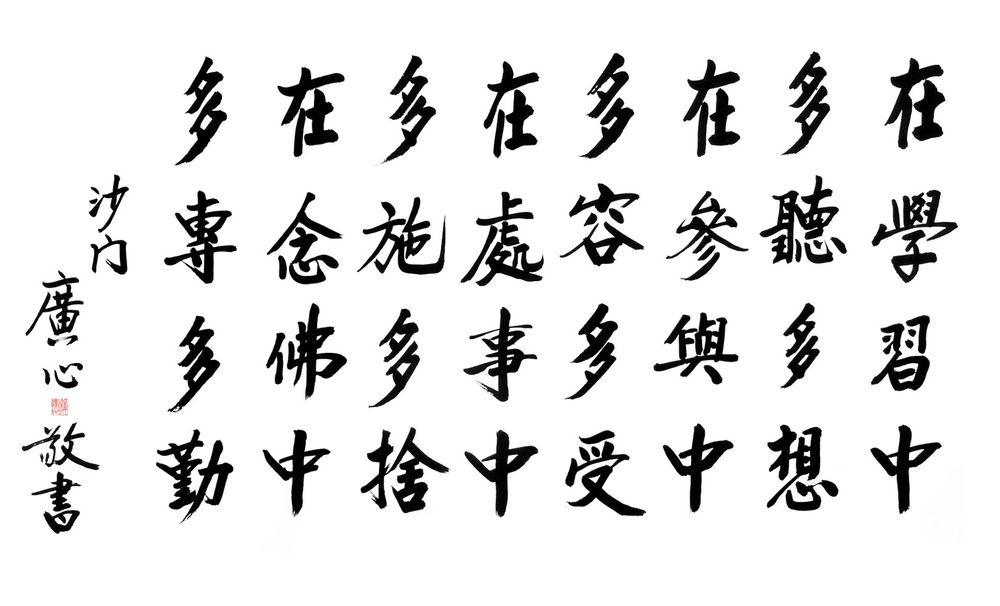 在學習中
多聽多想
在參與中
多容多受
在處事中
多施多捨
在念佛中
多專多勤
沙门
廣心
敬書